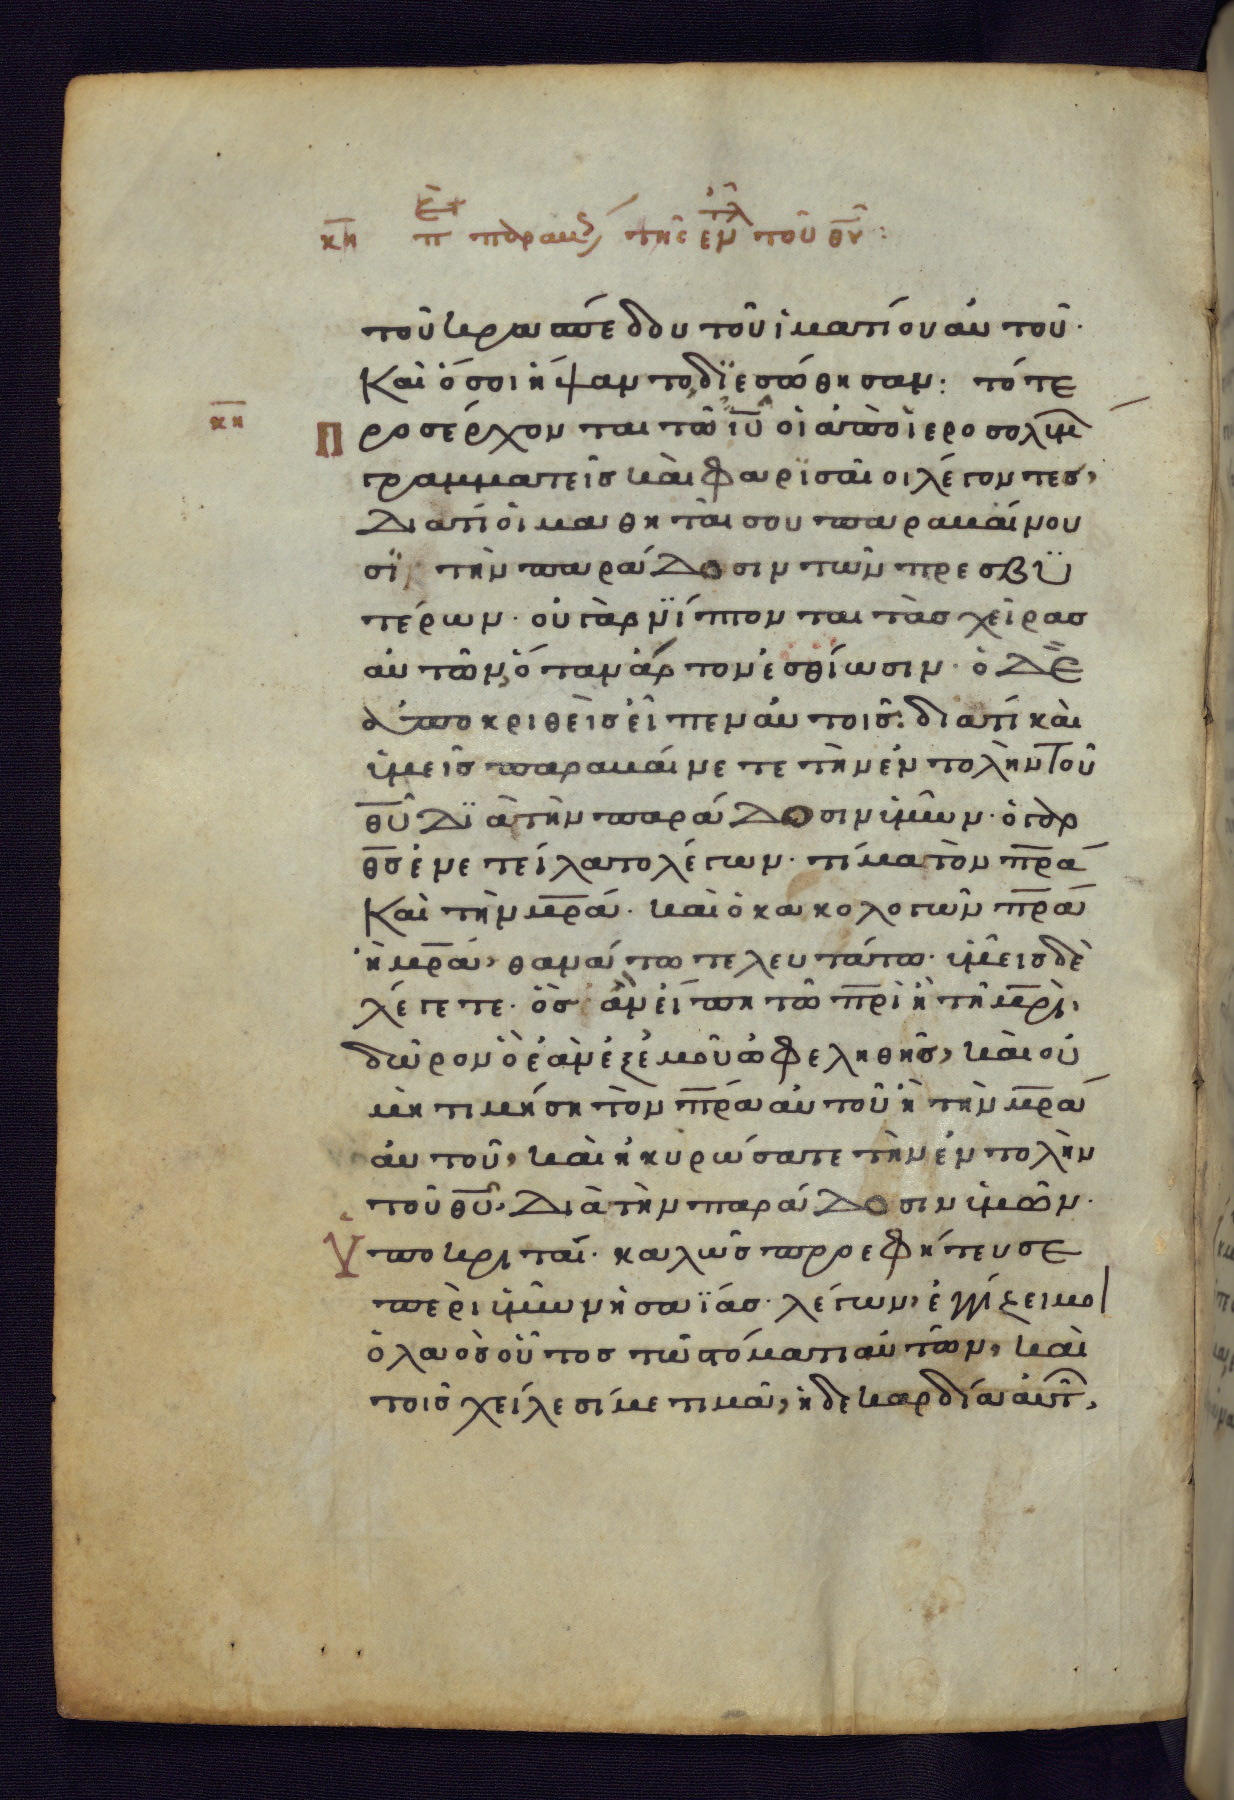 κη π παραβ της εμ του θυ
του κρασπέδου τοῦ ἱματίου αὐτοῦ·
Καὶ ὅσοι ἥψαντο, διεσώθησαν: τότε
κη
Προσέρχονται τῶ ιυ οἱ ἀπὸ ἱεροσολύμ
γραμματεῖσ καὶ φαρϊσαῖοι λέγοντεσ,
Διατί οἱ μαθηταί σου παραβαίνου
σϊ τὴν παράδοσιν τῶν πρεσβϋ
τέρων· οὐ γὰρ νΐπτονται τὰσ χεῖρασ
αὐτῶν, ὅταν ἄρτον ἐσθίωσιν· ὁ Δὲ
ἀποκριθεὶσ εἶπεν αὐτοῖσ· διατί καὶ
ὑμεῖσ παραβαίνετε τὴν ἐντολὴν τοῦ
θυ Δϊὰ τὴν παράδοσιν ὑμῶν· ὁ γὰρ
θσ ἐνετείλατο λέγων· τίμα τὸν πρα
Καὶ τὴν μρα· καὶ ὁ κακολογῶν πρα
ἢ μρα, θανάτω τελευτάτω· ὑμεῖσ δὲ
λέγετε· ὃσ ἂν εἴπη τῶ πρι ἢ τῆ μρι,
δῶρον ὃ ἐὰν ἐξ ἐμοῦ ὠφεληθῆσ, καὶ οὐ
μὴ τιμήση τὸν πρα αὐτοῦ ἢ τὴν μρα
αὐτοῦ, καὶ ἠκυρώσατε τὴν ἐντολὴν
τοῦ θυ, Διὰ τὴν παράδοσιν ὑμῶν·
Ὑποκριταί· καλῶσ προεφήτευσε
περὶ ὑμῶν ἡσαΐασ· λέγων, ἐγγίζει μοι
ὁ λαὸσ οὗτοσ τῶ στόματι αὐτῶν, καὶ
τοῖσ χείλεσί με τιμᾶ, ἡ δὲ καρδία αὐτ,